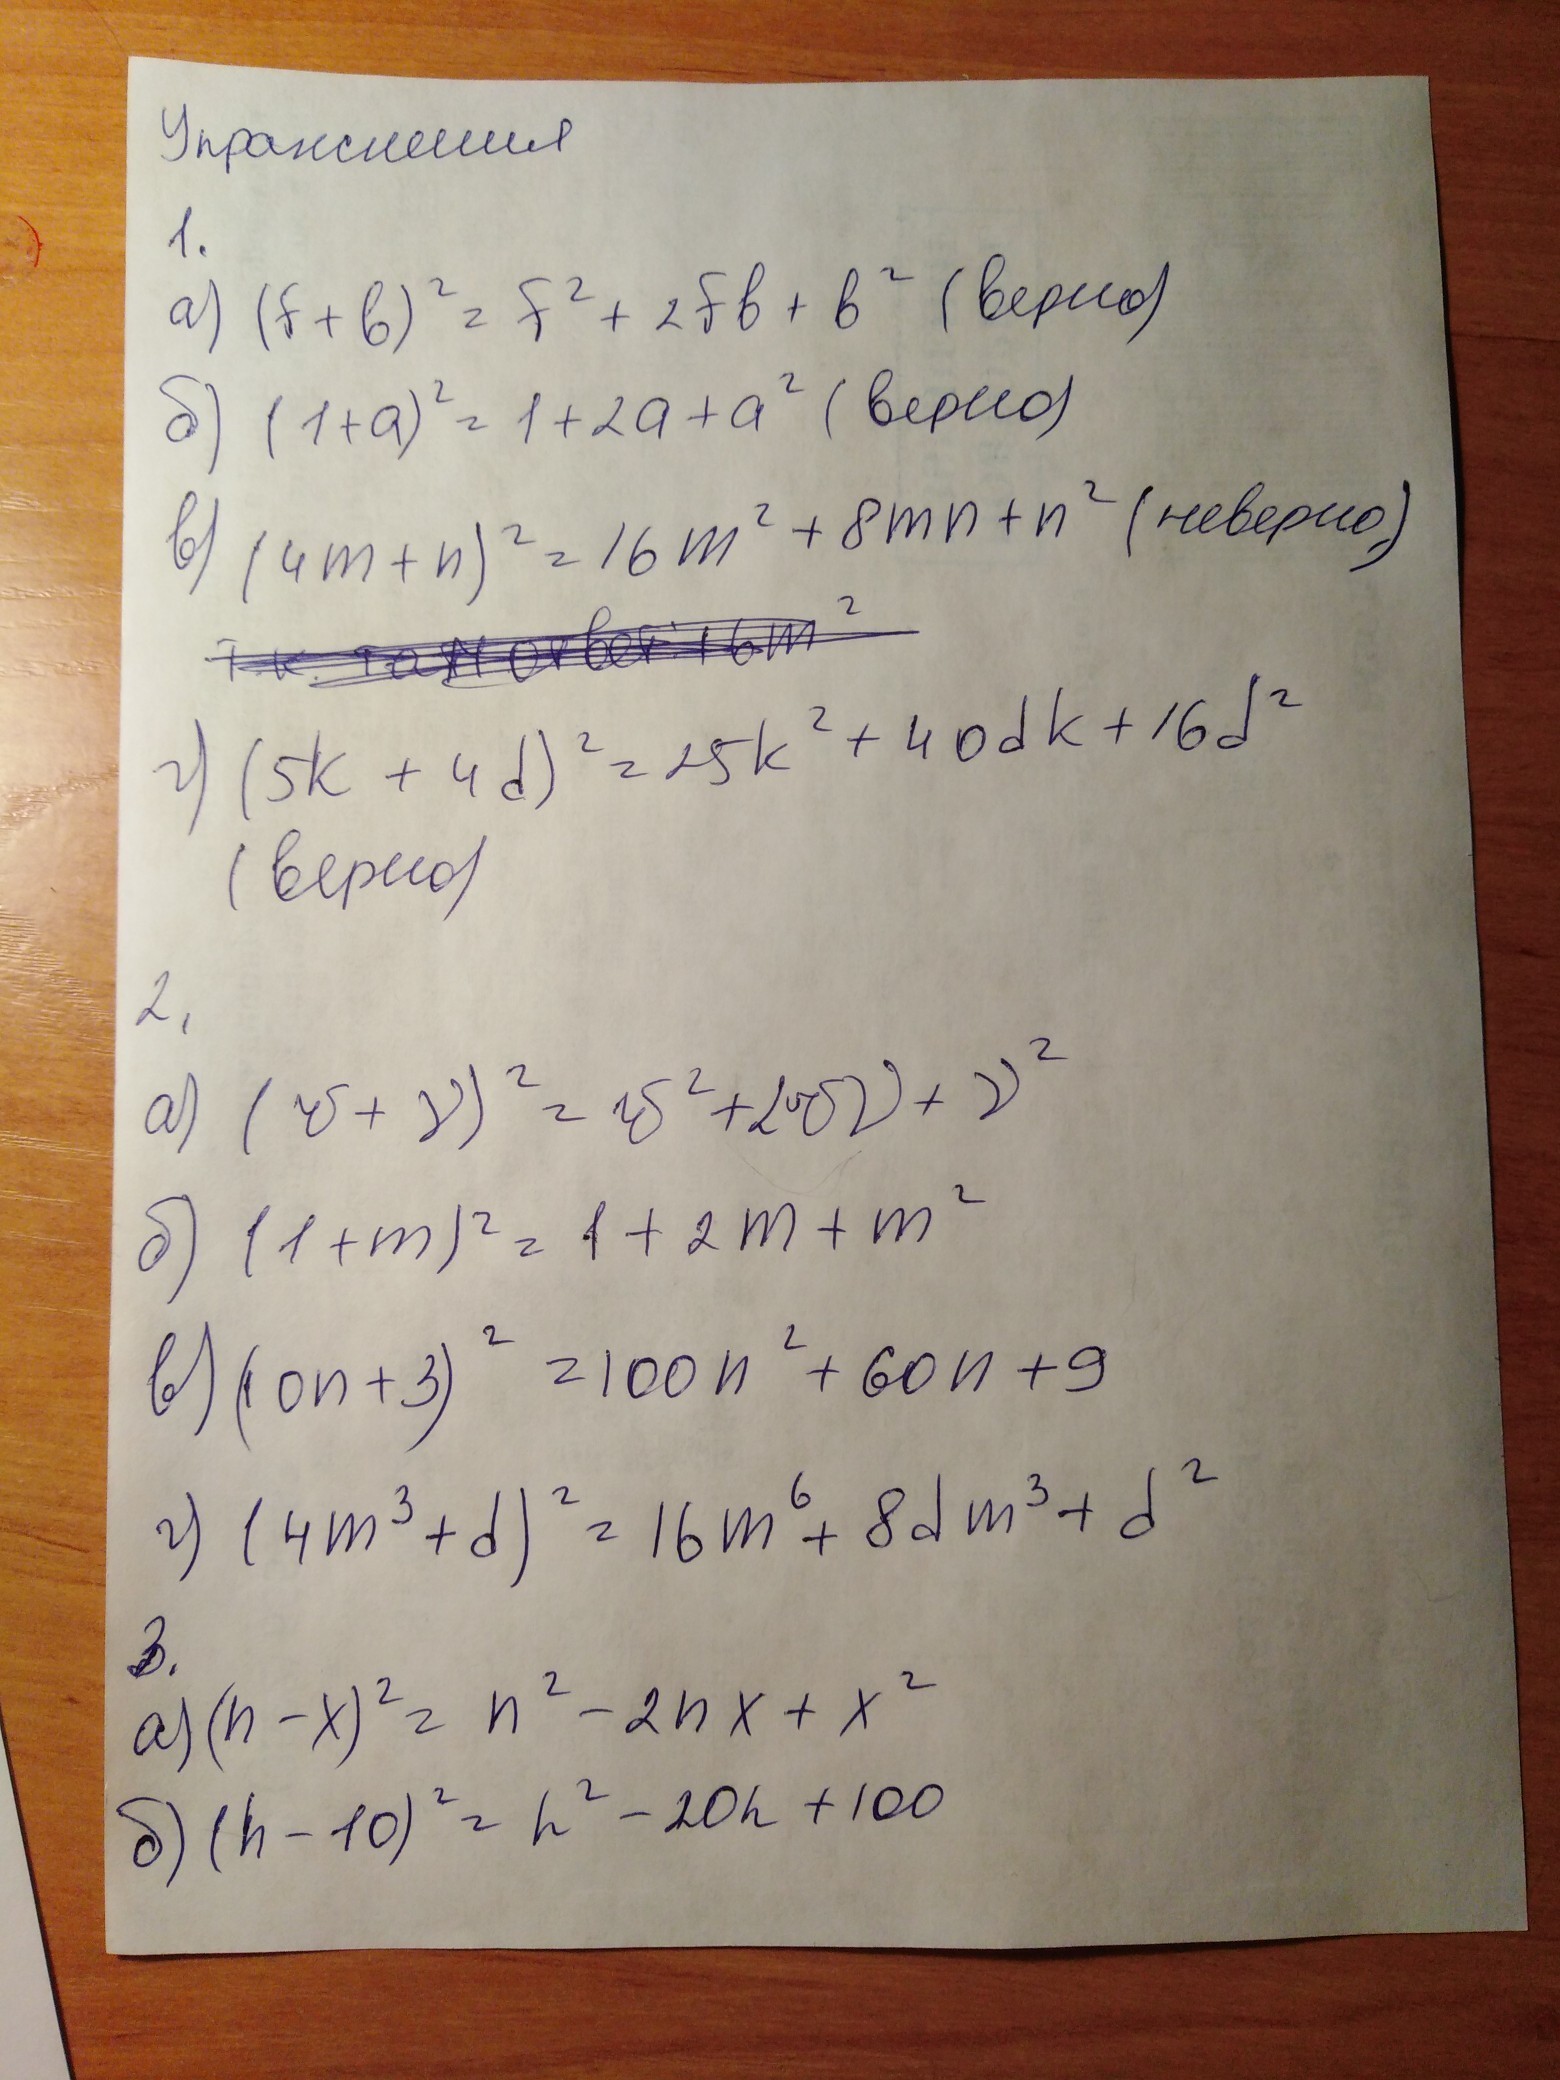 Упражнения
1.
а) (f+b)² = f² + 2fb + b² (верно)
б) (1+a)² = 1+2a+a² (верно)
в) (4m+n)² = 16m² + 8mn+n² (неверно,)
т.к. там ответ: 16m²
г) (5k + 4d)² = 25k² + 40dk + 16d²
(верно)
2.
а) (w + v)² = w² + 2wv + v²
б) (1+m)² = 1 + 2m + m²
в) (10n+3)² = 100n² + 60n + 9
г) (4m³+d)² = 16m⁶ + 8dm³ + d²
3.
а) (n-x)² = n² - 2nx + x²
б) (h-10)² = h² - 20h + 100